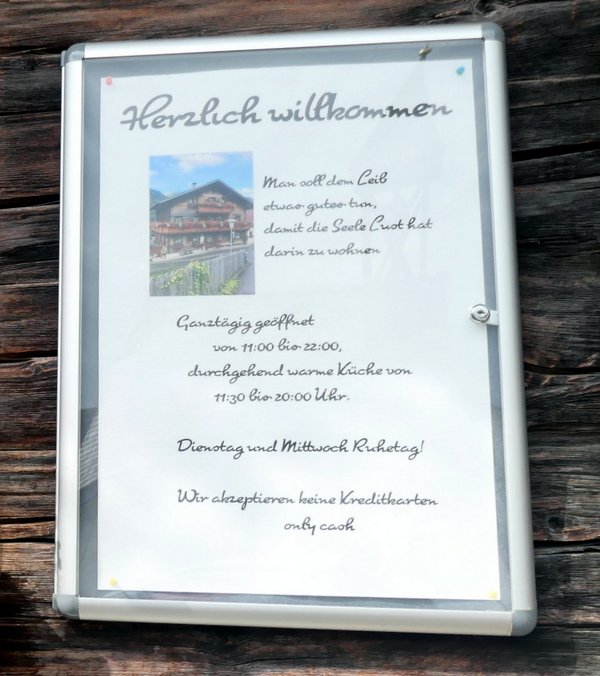 Herzlich willkommen
Man soll dem Leib
etwas gutes tun,
damit die Seele Lust hat
darin zu wohnen
Ganztägig geöffnet
von 11:00 bis 22:00,
durchgehend warme Küche von
11:30 bis 20:00 Uhr.
Dienstag und Mittwoch Ruhetag!
Wir akzeptieren keine Kreditkarten
only cash